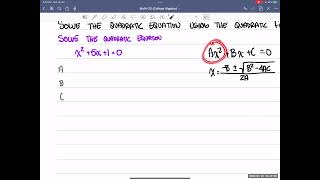 SOLVE THE QUADRATIC EQUATION USING THE QUADRATIC
SOLVE THE QUADRATIC EQUATION
x² + 5x + 1 = 0
Ax² + Bx + C = 0
x = -B ± √B² - 4AC
2A
A
B
C